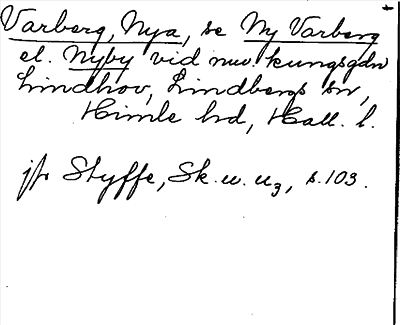 Varberg, Nya, se Ny Varberg
el. Nyby vid nuv. kungsgdn
Lindhov, Lindbergs sn,
Himle hd, Hall. l.
jfr Styffe, Sk. u. u3, s. 103.